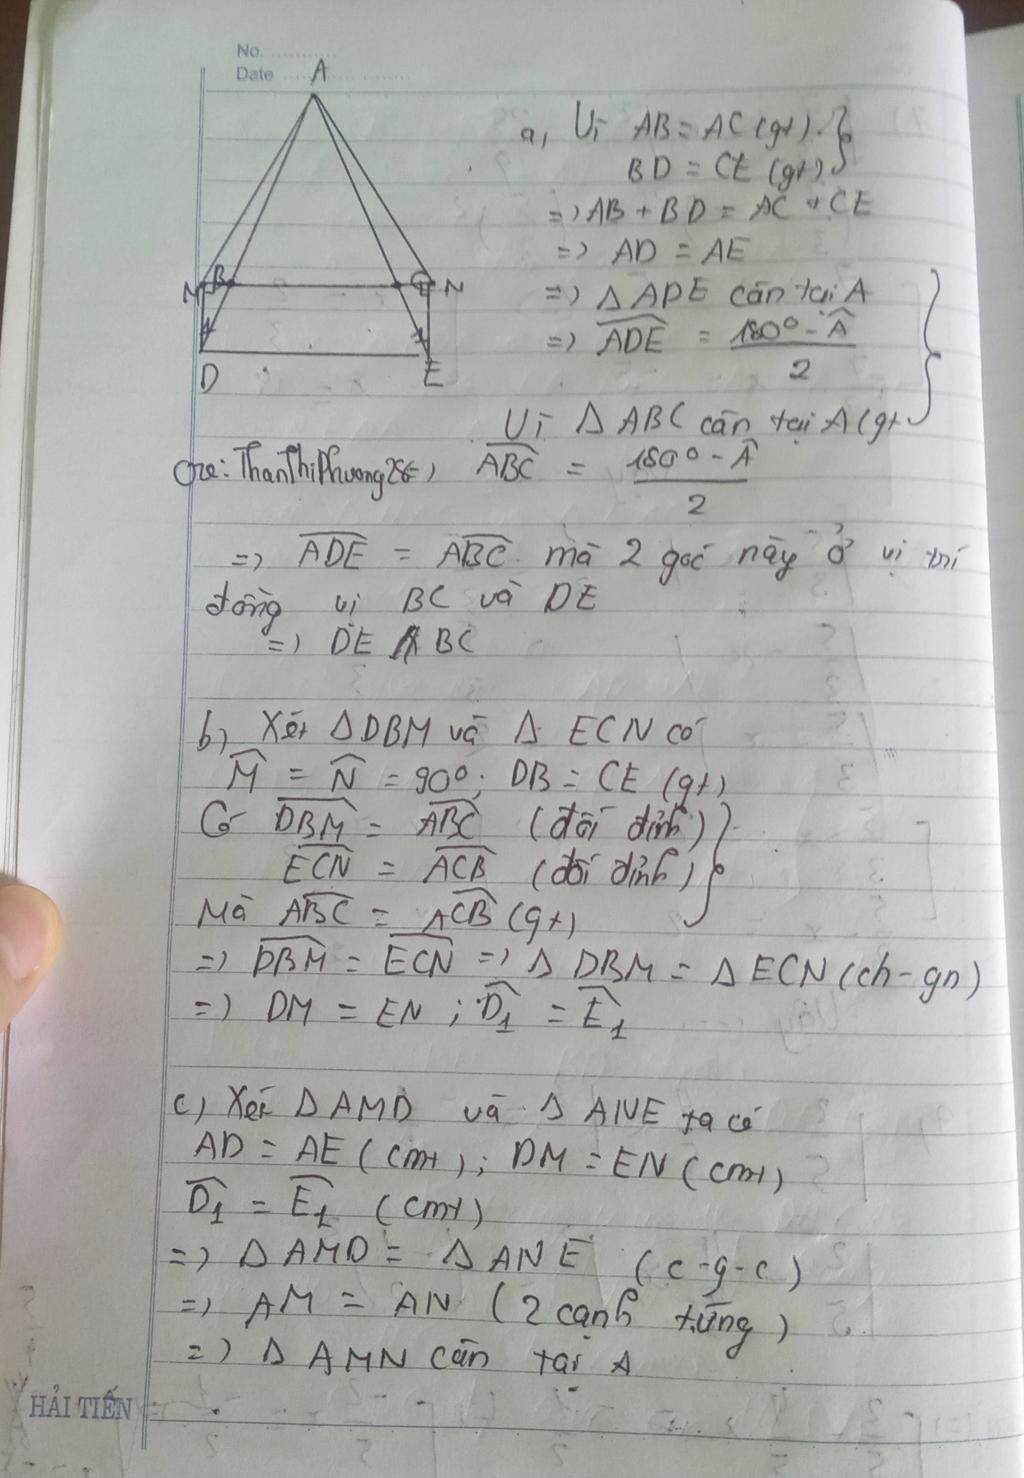 No.
Date
A
M B C N
D E
a, Vì AB = AC (gt)
BD = CE (gt)
=> AB + BD = AC + CE
=> AD = AE
=> Δ ADE cân tại A
=> ADE = 180° - Â / 2
Vì Δ ABC cân tại A (gt
Cre: ThanThiPhuong
ABC = 180° - Â / 2
=> ADE = ABC mà 2 góc này ở vị trí
đồng vị BC và DE
=> DE // BC
b) Xét ΔDBM và Δ ECN có
M = N = 90°; DB = CE (gt)
Có DBM = ABC (đối đỉnh)
ECN = ACB (đối đỉnh)
Mà ABC = ACB (gt)
=> DBM = ECN => Δ DBM = Δ ECN (ch-gn)
=> DM = EN ; D1 = E1
c) Xét ΔAMD và Δ ANE ta có
AD = AE (cmt); DM = EN (cmt)
D1 = E1 (cmt)
=> Δ AMD = Δ ANE (c-g-c)
=> AM = AN (2 cạnh tứng)
=> Δ AMN cân tại A
HẢI TIẾN